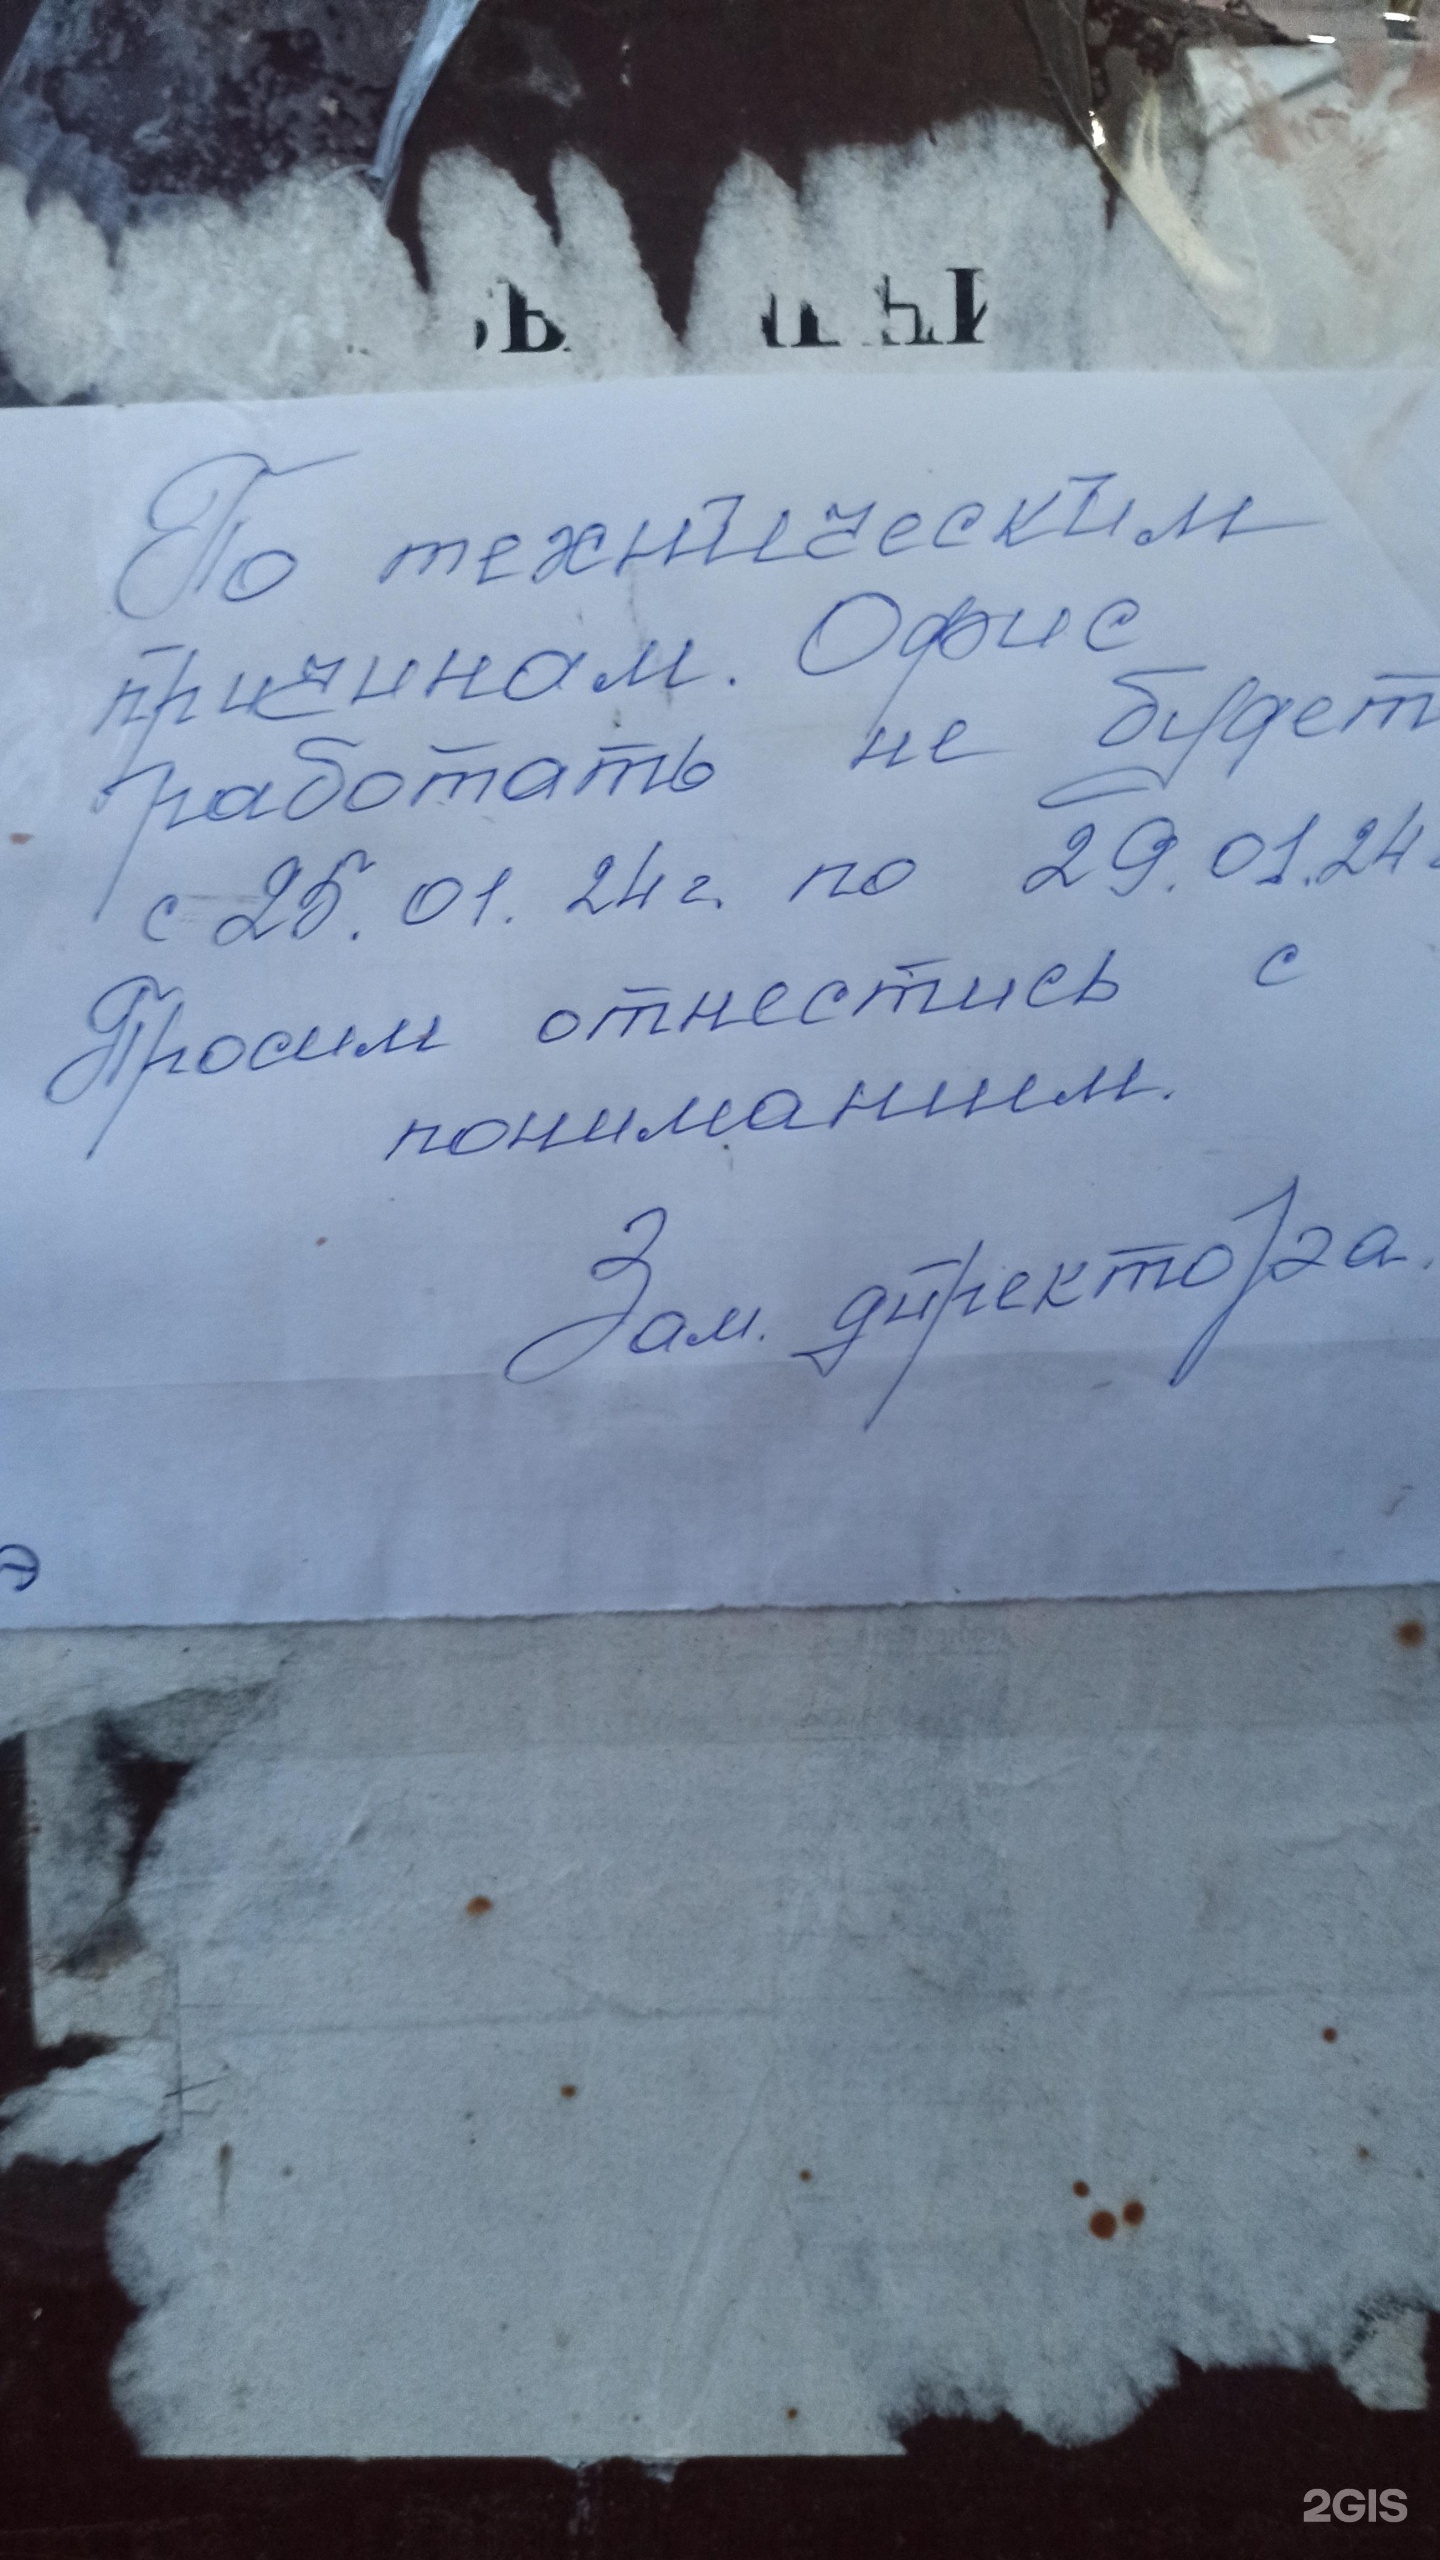 По техническим
причинам. Офис
работать не будет
с 25.01.24г. по 29.01.24г
Просим отнестись с
пониманием.
Зам. директора.
2GIS